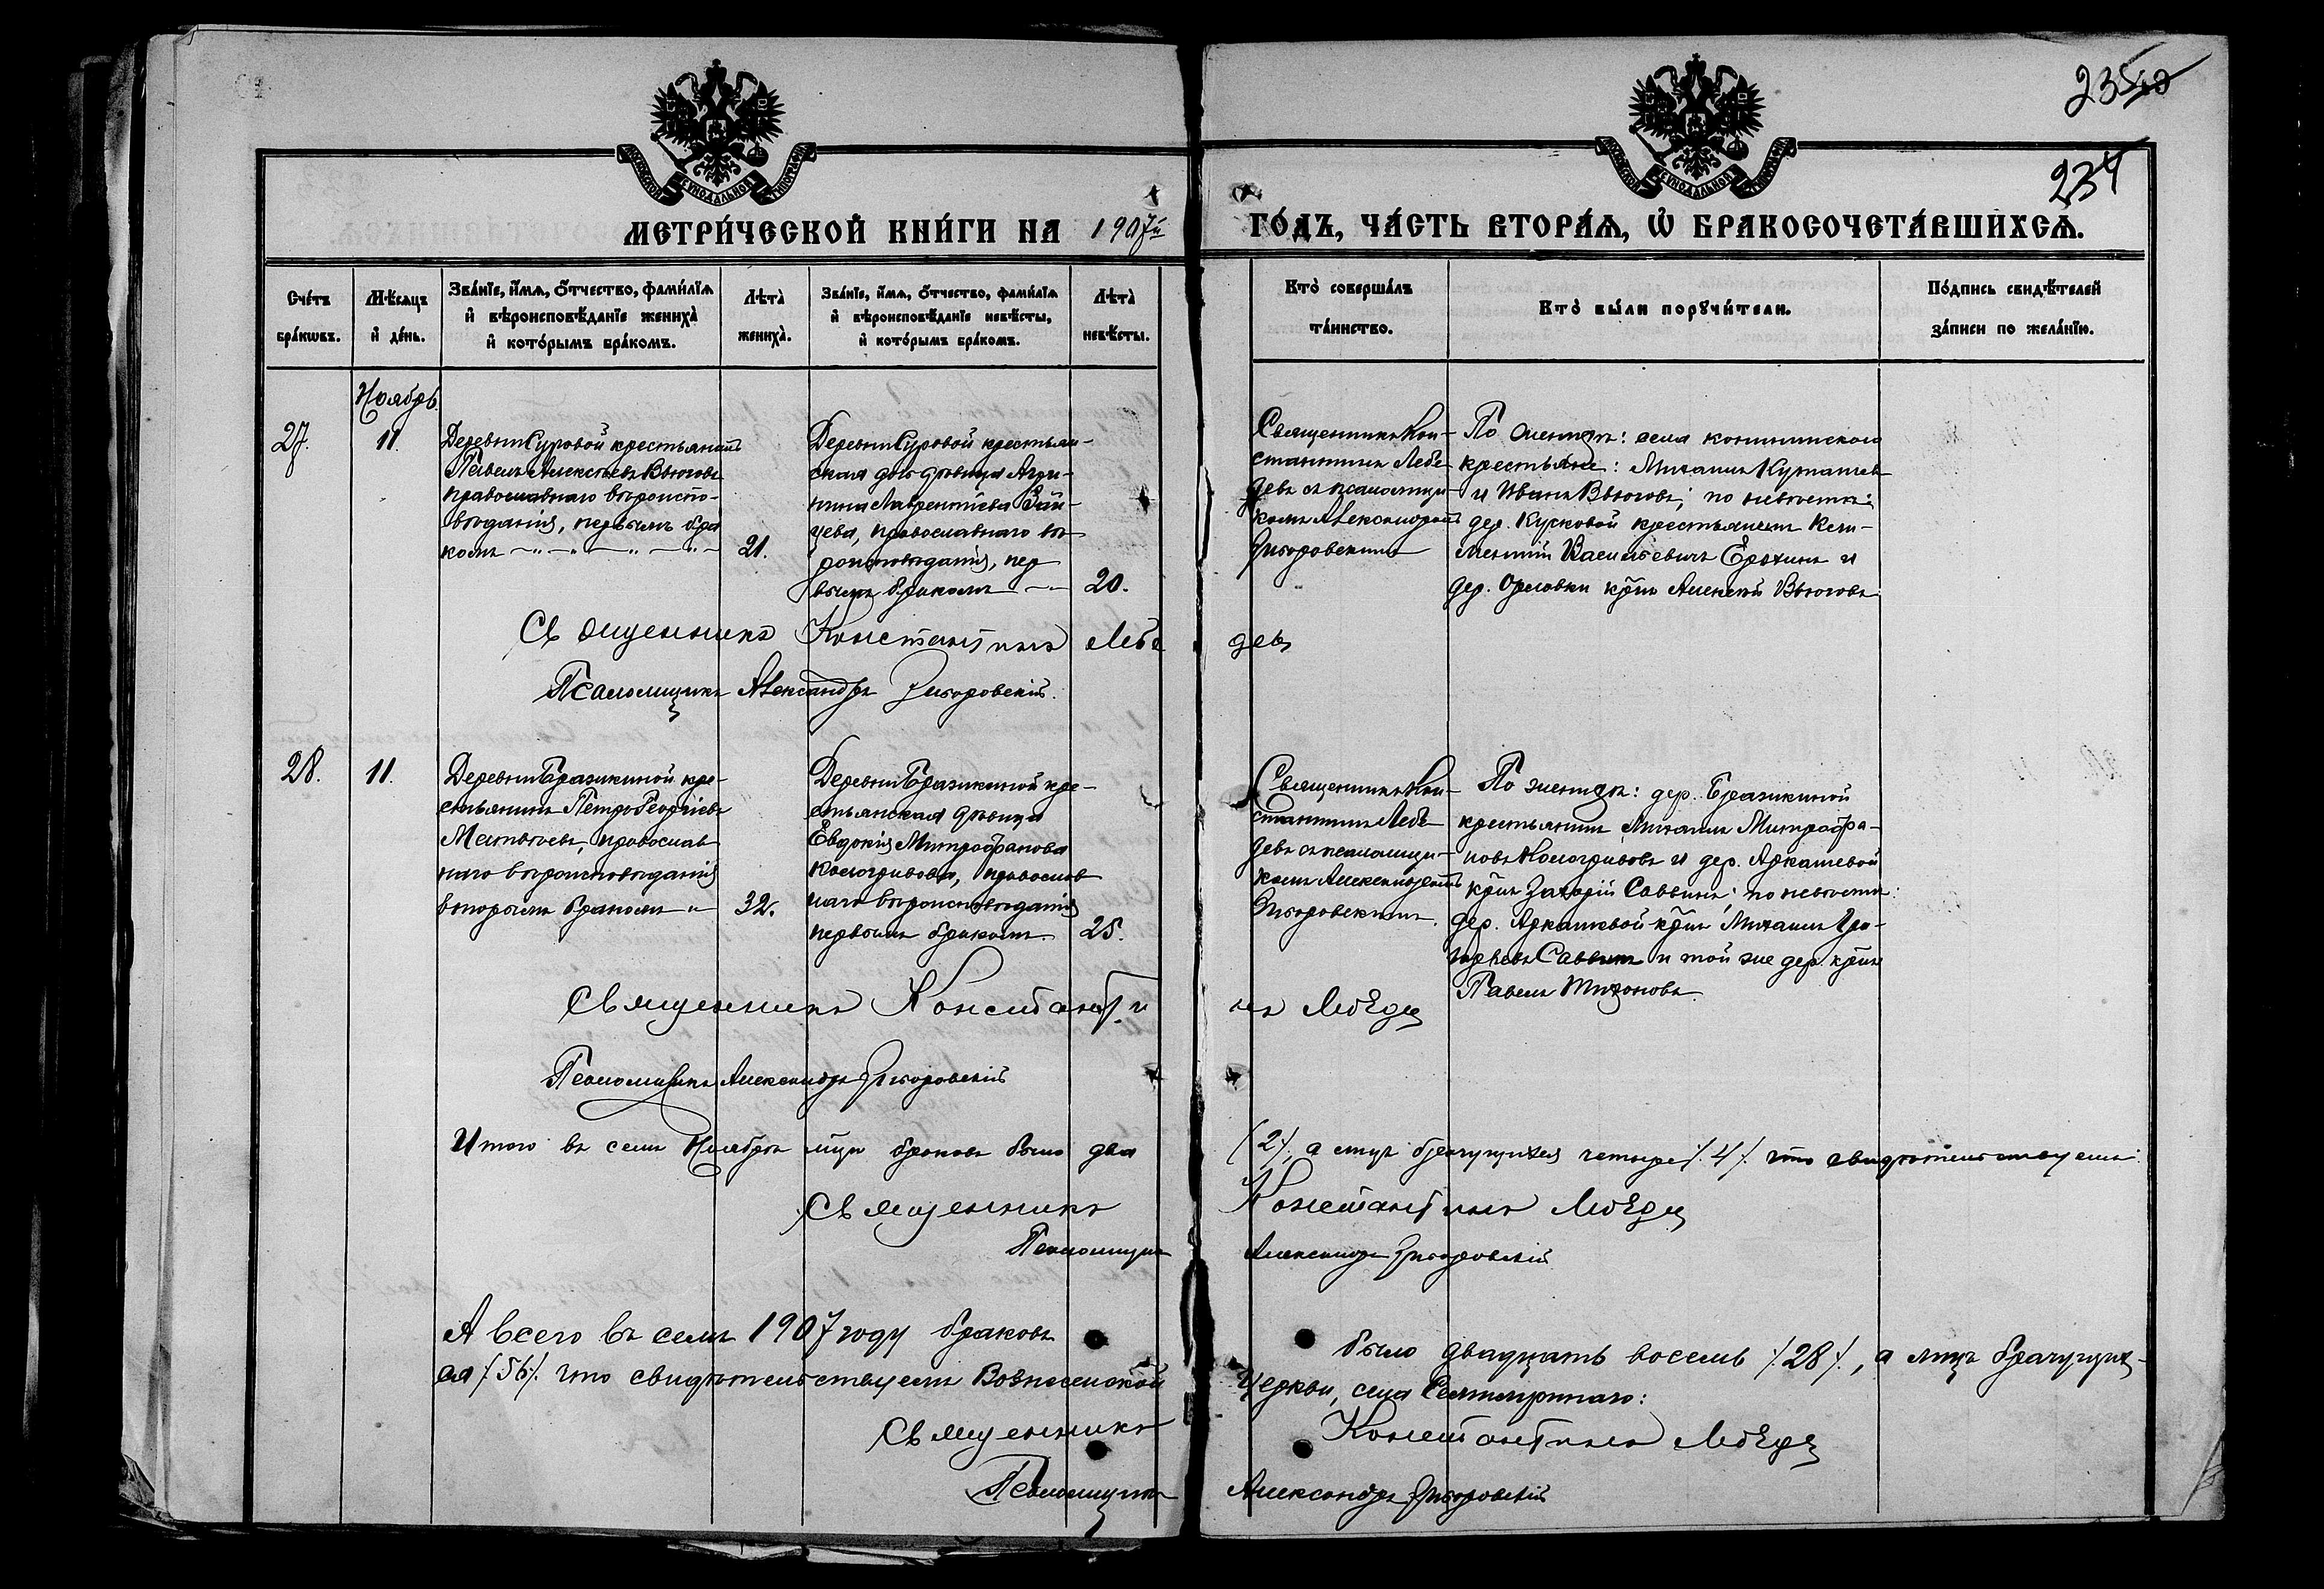 23540
234
МЕТРИ́ЧЕСКОЙ КНИ́ГИ НА 1907й ГО́ДЪ, ЧА́СТЬ ВТОРА́Ѧ, Ѡ҆ БРАКОСОЧЕТА́ВШИХСѦ.
Сче́тъ бра́кѡвъ.
Мѣ́сяцъ и҆ де́нь.
Зва́нїе, и҆́мѧ, ѻ҆́тчество, фами́лїѧ
и҆ вѣроисповѣ́данїе жениха̀
и҆ кото́рымъ бра́комъ.
Лѣта̀ жениха̀.
Зва́нїе, и҆́мѧ, ѻ҆́тчество, фами́лїѧ
и҆ вѣроисповѣ́данїе невѣ́сты,
и҆ кото́рымъ бра́комъ.
Лѣта̀ невѣ́сты.
Кто̀ соверша́лъ
та́инство.
Кто̀ бы́ли порꙋчи́тели.
По́дпись свидѣ́телей
за́писи по жела́нїю.
Ноябрь
27.
11.
Деревни Суровой крестьянинъ
Павелъ Алексѣевъ Вьюговъ
православнаго вѣроиспо-
вѣданія, первымъ бра
комъ
21.
Деревни Суровой крестьян-
ская дѣвица Агри-
пина Лаврентіева Зай-
цева, православнаго вѣ
роисповѣданія, пер
вымъ бракомъ
20.
Священникъ Кон-
стантинъ Лебе
девъ съ псаломщи-
комъ Александромъ
По женихѣ: села
крестьяне: Михаилъ
и Иванъ Вьюговъ; по невѣстѣ:
дер. Кусковой крестьянинъ Кли-
ментій Васильевичъ Ерохинъ и
дер. Орловки кр̃нъ Алексѣй Вьюговъ.
Священникъ Константинъ Лебе девъ
Псаломщикъ Александръ
28.
11.
Деревни Бразикиной кре-
стьянинъ Петръ Георгіевъ
Матвѣевъ, православ
наго вѣроисповѣданія
вторымъ бракомъ
32.
Деревни Бразикиной кре-
стьянская дѣвица
Евдокія Митрофанова
Кологривова, православ
наго вѣроисповѣданія
первымъ бракомъ.
25.
Священникъ Кон-
стантинъ Лебе
девъ съ псаломщи-
комъ Александромъ
По женихѣ: дер. Бразикиной
крестьянинъ Михаилъ Митрофа-
новъ Кологривовъ и дер. Аркашевой
кр̃нъ Захарій Саввинъ; по невѣстѣ:
дер. Аркашевой кр̃нъ Михаилъ Гри-
горьевъ Саввинъ и той же дер. кр̃нъ
Павелъ Тихоновъ.
Священникъ Константи нъ Лебеде
Псаломщикъ Александръ
Итого въ семъ Ноябрѣ мцѣ браковъ было два (2), а лицъ брачущихся четыре /.4/. что свидѣтельствуемъ:
Священникъ Константинъ Лебеде
Псаломщикъ Александръ
А всего въ семъ 1907 году браковъ было двадцать восемь /.28/., а лицъ брачущих-
ся /.56/. что свидѣтельствуемъ Вознесенской Церкви, села
Священникъ Константинъ Лебеде
Псаломщикъ Александръ